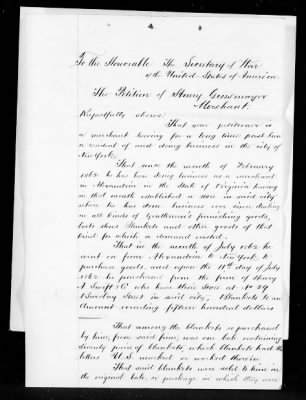 To the Honorable The Secretary of War
of the United States of America.
The Petition of Henry Grossmayer
Merchant.
Respectfully shows:
That your petitioner is
a merchant having for a long time past been
a resident of and doing business in the city of
New York.
That since the month of February
1862 he has been doing business as a merchant
in Alexandria in the State of Virginia having
in that month established a store in said city
where he has done business ever since dealing
in all kinds of Gentlemen's furnishing goods,
boots shoes Blankets and other goods of that
kind for which a demand existed.
That in the month of July 1862 he
went on from Alexandria to New York, to
purchase goods, and upon the 11th day of July
1862 he purchased from the firm of Henry
A Swift & Co who have their Store at No 29
Barclay Street in said city, Blankets to an
amount exceeding fifteen hundred dollars
That among the blankets so purchased
by him, from said firm, was one bale containing
seventy pairs of blankets, which blankets had the
letters U.S. marked or worked therein
That said blankets were sold to him in
the original bale, or package in which they were